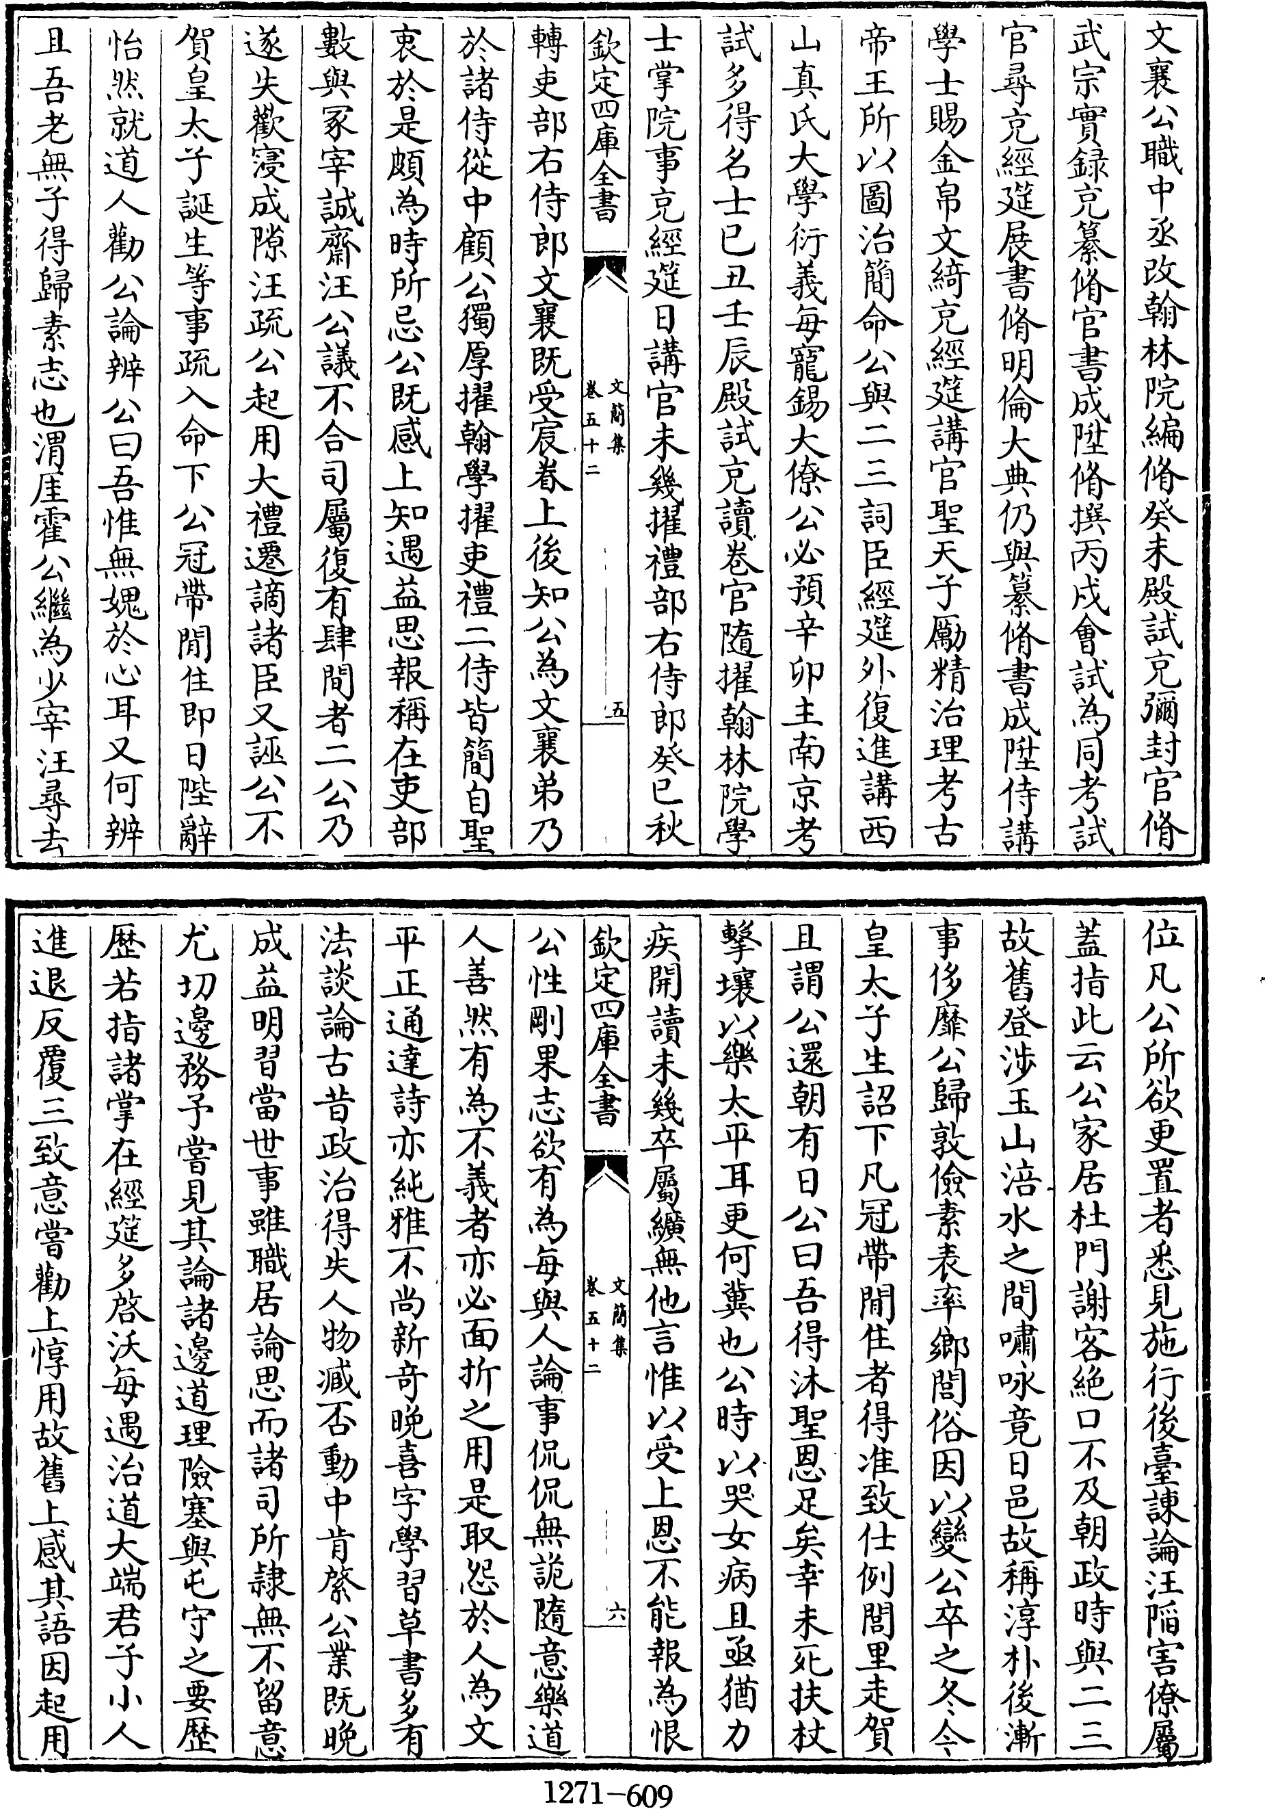 文襄公職中丞改翰林院編脩癸未殿試充彌封官脩
武宗實録充纂脩官書成陞脩撰丙戌會試為同考試
官尋充經筵展書脩明倫大典仍與纂脩書成陞侍講
學士賜金帛文綺充經筵講官聖天子勵精治理考古
帝王所以圖治簡命公與二三詞臣經筵外復進講西
山真氏大學衍義每寵錫大僚公必預辛卯主南京考
試多得名士已丑壬辰殿試充讀卷官隨擢翰林院學
士掌院事充經筵日講官未幾擢禮部右侍郎癸巳秋
欽定四庫全書 文簡集 卷五十二 五
轉吏部右侍郎文襄既受宸眷上後知公為文襄弟乃
於諸侍從中顧公獨厚擢翰學擢吏禮二侍皆簡自聖
衷於是頗為時所忌公既感上知遇益思報稱在吏部
數與冢宰誠齋汪公議不合司屬復有肆間者二公乃
遂失歡寖成隙汪疏公起用大禮遷謫諸臣又誣公不
賀皇太子誕生等事疏入命下公冠帶閒住即日陛辭
怡然就道人勸公論辨公曰吾惟無媿於心耳又何辨
且吾老無子得歸素志也渭厓霍公繼為少宰汪尋去
位凡公所欲更置者悉見施行後臺諫論汪陷害僚屬
蓋指此云公家居杜門謝客絶口不及朝政時與二三
故舊登涉玉山涪水之間嘯咏竟日邑故稱淳朴後漸
事侈靡公歸敦儉素表率鄉閭俗因以變公卒之冬今
皇太子生詔下凡冠帶閒住者得准致仕例閭里走賀
且謂公還朝有日公曰吾得沐聖恩足矣幸未死扶杖
擊壤以樂太平耳更何冀也公時以哭女病且亟猶力
疾開讀未幾卒屬纊無他言惟以受上恩不能報為恨
欽定四庫全書 文簡集 卷五十二 六
公性剛果志欲有為每與人論事侃侃無詭隨意樂道
人善然有為不義者亦必面折之用是取怨於人為文
平正通達詩亦純雅不尚新奇晩喜字學習草書多有
法談論古昔政治得失人物臧否動中肯綮公業既晩
成益明習當世事雖職居論思而諸司所隷無不留意
尤切邊務予嘗見其論諸邊道理險塞與屯守之要歴
歴若指諸掌在經筵多啓沃每遇治道大端君子小人
進退反覆三致意嘗勸上惇用故舊上感其語因起用
1271-609